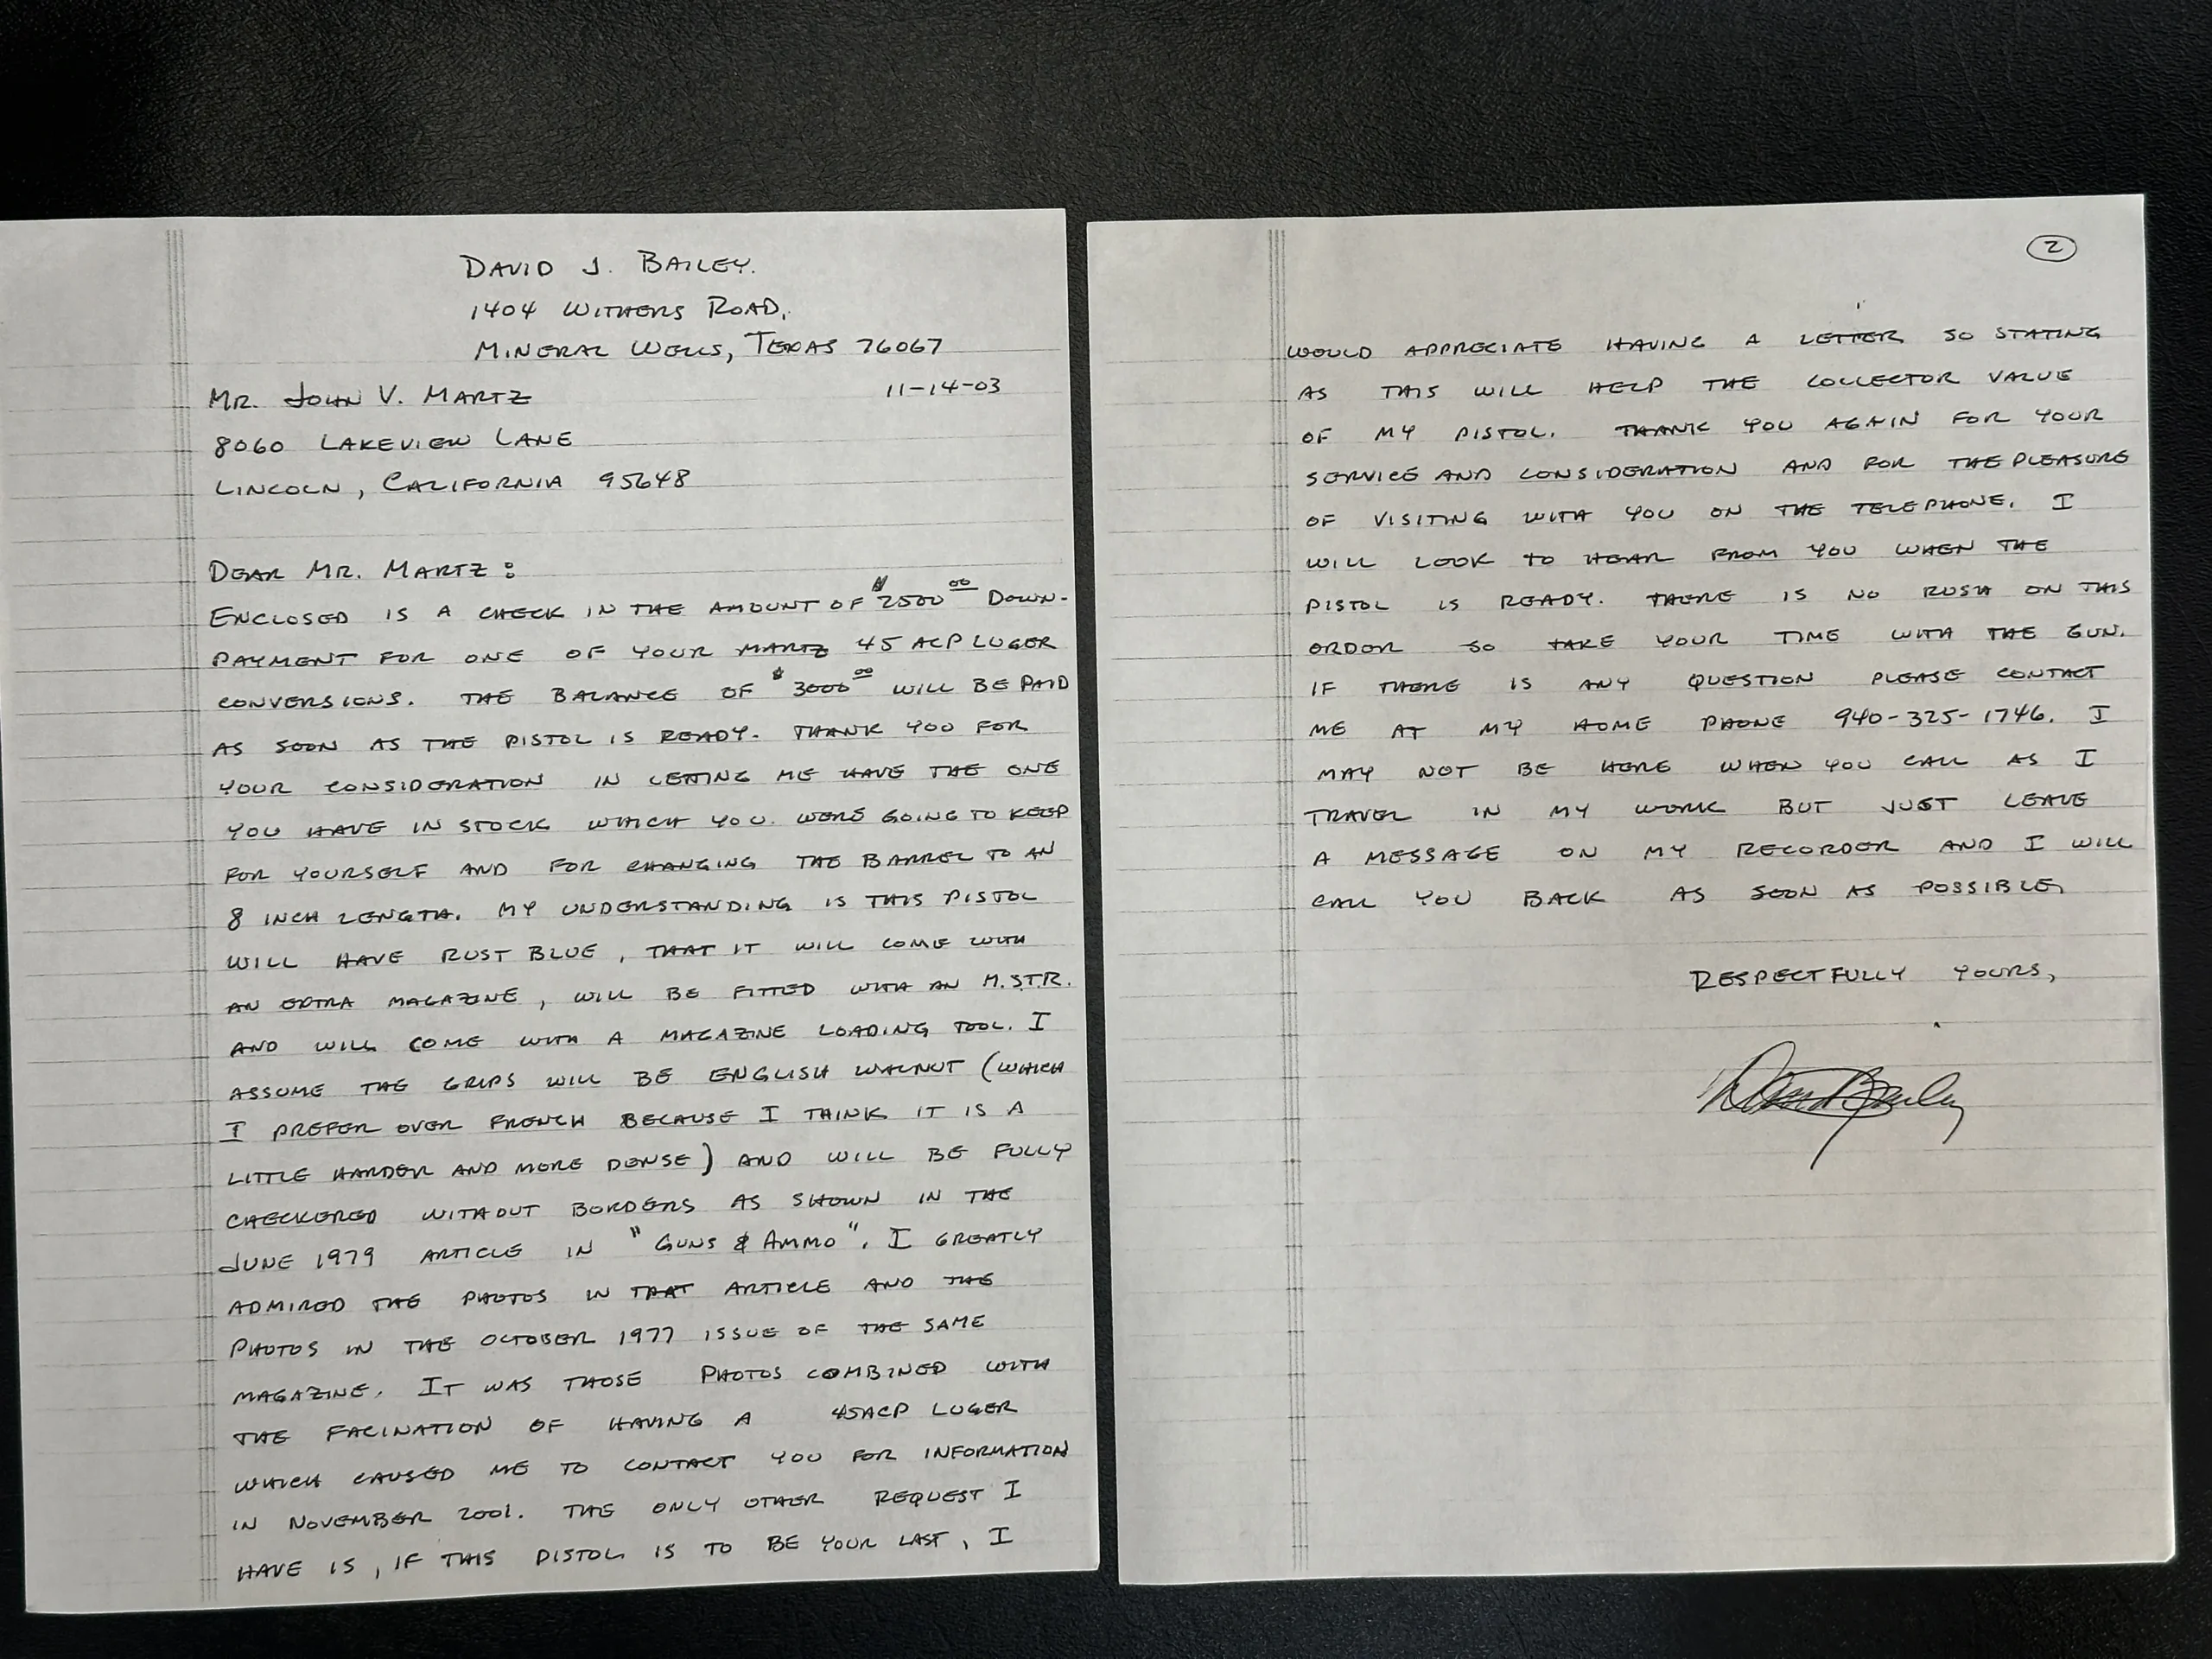 DAVID J. BAILEY.
1404 WITHERS ROAD,
MINERAL WELLS, TEXAS 76067
MR. JOHN V. MARTZ 11-14-03
8060 LAKEVIEW LANE
LINCOLN, CALIFORNIA 95648
DEAR MR. MARTZ:
ENCLOSED IS A CHECK IN THE AMOUNT OF $2500 00 DOWN-
PAYMENT FOR ONE OF YOUR MARTZ 45 ACP LUGER
CONVERSIONS. THE BALANCE OF $3000 00 WILL BE PAID
AS SOON AS THE PISTOL IS READY. THANK YOU FOR
YOUR CONSIDERATION IN LETTING ME HAVE THE ONE
YOU HAVE IN STOCK WHICH YOU. WERE GOING TO KEEP
FOR YOURSELF AND FOR CHANGING THE BARREL TO AN
8 INCH LENGTH. MY UNDERSTANDING IS THIS PISTOL
WILL HAVE RUST BLUE, THAT IT WILL COME WITH
AN EXTRA MAGAZINE, WILL BE FITTED WITH AN M.S.T.R.
AND WILL COME WITH A MAGAZINE LOADING TOOL. I
ASSUME THE GRIPS WILL BE ENGLISH WALNUT (WHICH
I PREFER OVER FRENCH BECAUSE I THINK IT IS A
LITTLE HARDER AND MORE DENSE) AND WILL BE FULLY
CHECKERED WITHOUT BORDERS AS SHOWN IN THE
JUNE 1979 ARTICLE IN "GUNS & AMMO". I GREATLY
ADMIRED THE PHOTOS IN THAT ARTICLE AND THE
PHOTOS IN THE OCTOBER 1977 ISSUE OF THE SAME
MAGAZINE. IT WAS THOSE PHOTOS COMBINED WITH
THE FACINATION OF HAVING A 45ACP LUGER
WHICH CAUSED ME TO CONTACT YOU FOR INFORMATION
IN NOVEMBER 2001. THE ONLY OTHER REQUEST I
HAVE IS, IF THIS PISTOL IS TO BE YOUR LAST, I
2
WOULD APPRECIATE HAVING A LETTER SO STATING
AS THIS WILL HELP THE COLLECTOR VALUE
OF MY PISTOL. THANK YOU AGAIN FOR YOUR
SERVICE AND CONSIDERATION AND FOR THE PLEASURE
OF VISITING WITH YOU ON THE TELEPHONE. I
WILL LOOK TO HEAR FROM YOU WHEN THE
PISTOL IS READY. THERE IS NO RUSH ON THIS
ORDER SO TAKE YOUR TIME WITH THE GUN.
IF THERE IS ANY QUESTION PLEASE CONTACT
ME AT MY HOME PHONE 940-325-1746. I
MAY NOT BE HERE WHEN YOU CALL AS I
TRAVEL IN MY WORK BUT JUST LEAVE
A MESSAGE ON MY RECORDER AND I WILL
CALL YOU BACK AS SOON AS POSSIBLE,
RESPECTFULLY YOURS,
David Bailey